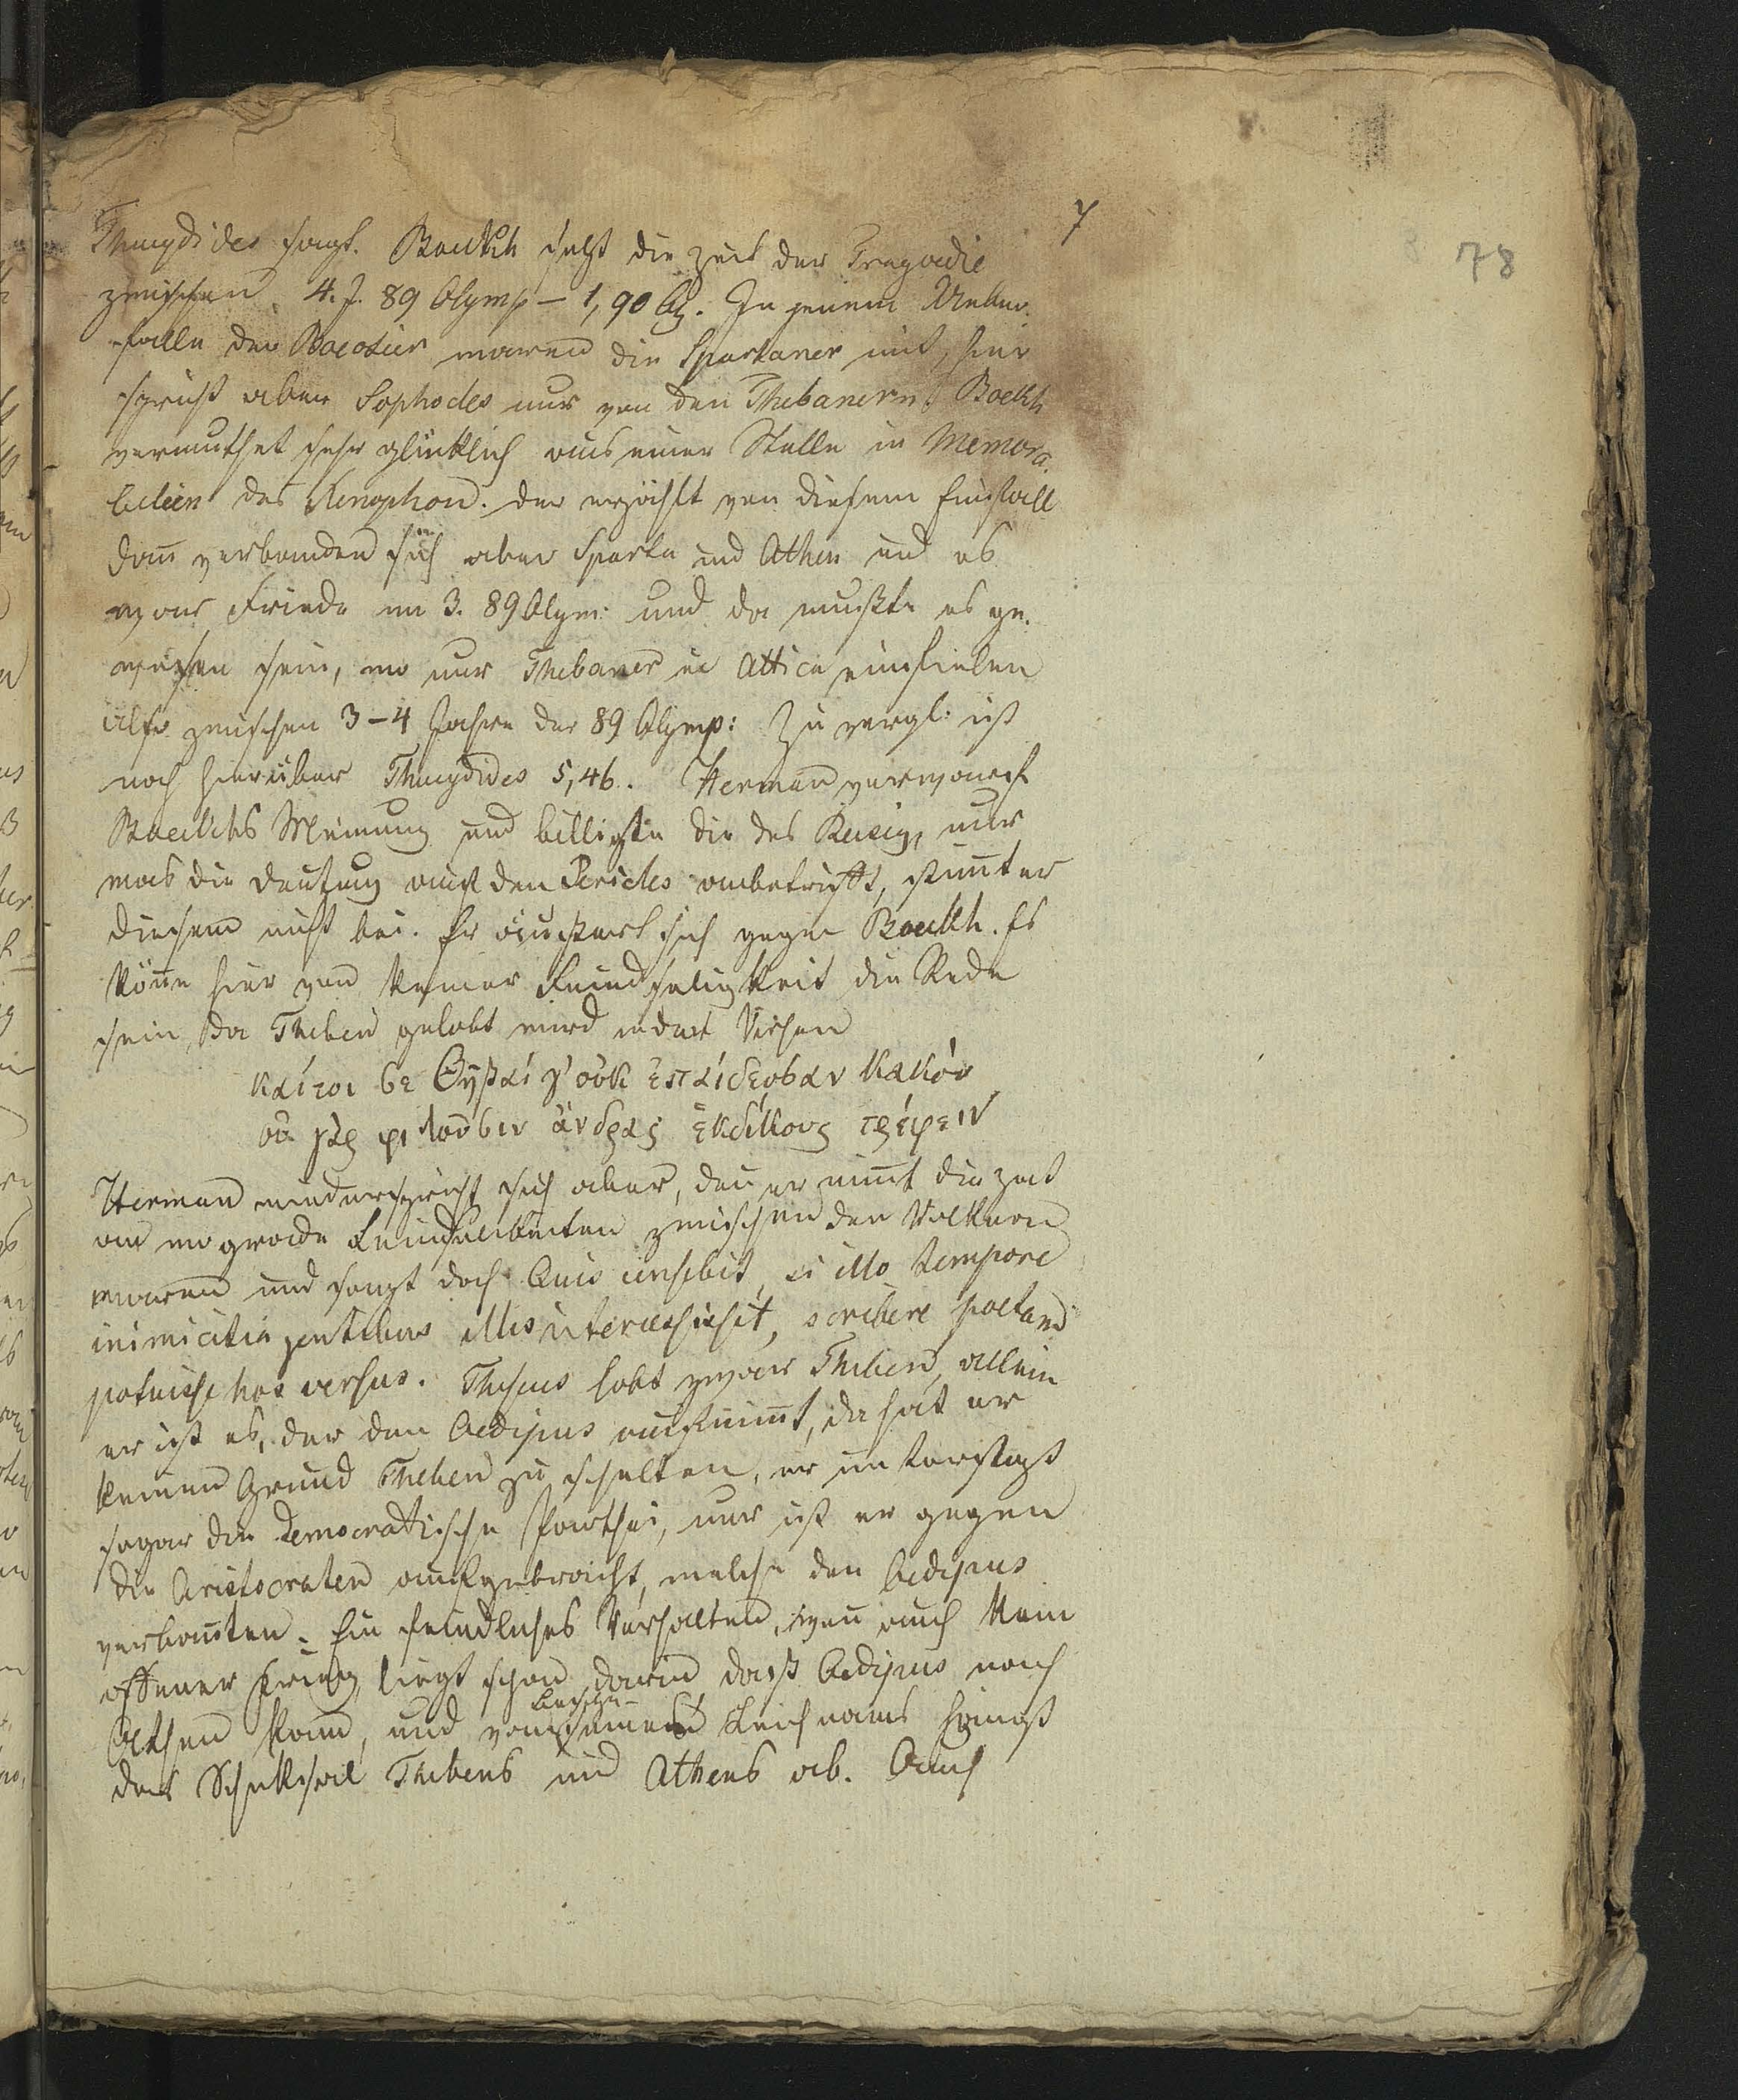 7
78
Thucydides sagt. Boeckh setzt die Zeit der Tragoedie
zwischen 4. J. 89 Olymp – 1, 90 Ol. In jenem Ueber-
falle der Boeotier waren die Spartaner mit, hier
spricht aber Sophocles nur von den Thebanern. Boeckh
vermuthet sehr glücklich aus einer Stelle in Memora-
bilien des Xenophon. Der erzählt von diesem Einfall
dañ verbanden sich aber Sparta und Athen und es
war Friede im 3. 89 Olym: und da mußte es ge-
wesen sein, wo nur Thebaner in Attica einfielen
also zwischen 3–4 Jahre der 89 Olymp: Zu vergl: ist
noch hierüber Thucydides 5,46. Herman verwarf
Boeckhs Meinung und billigte die des Reisig, nur
was die Deutung auf den Pericles anbetrifft, stim̃t er
diesem nicht bei. Er äußert sich gegen Boeckh. Es
köñe hier von keiner Feindseligkeit die Rede
sein, da Theben gelobt wird in den Versen
καίτοι σε Θῆβαί γ' οὐκ ἐπαίδευσαν κακόν
οὐ γὰρ φιλοῦσιν ἄνδρας ἐκδίκους τρέφειν
Herman widerspricht sich aber, deñ er nim̃t die Zeit
an wo grade Feindselikeiten zwischen den Völkern
waren und sagt doch Quis censebit, si illo tempore
inimicitia gentibus illis intercessisset, scribere poetam
potuisse hos versus. Theseus lobt zwar Theben, allein
er ist es, der den Oedipus aufnim̃t, da hat er
keinen Grund Theben zu schelten, er unterstützt
sogar die democrattische Parthei, nur ist er gegen
die Aristocraten aufgebracht, welche den Oedipus
verbañten. Ein feindliches Verhalten, weñ auch kein
offener Krieg, liegt schon darin daß Oedipus nach
Athen kam, und von seines Leichnams hängt
das Schicksal Thebens und Athens ab. Auch